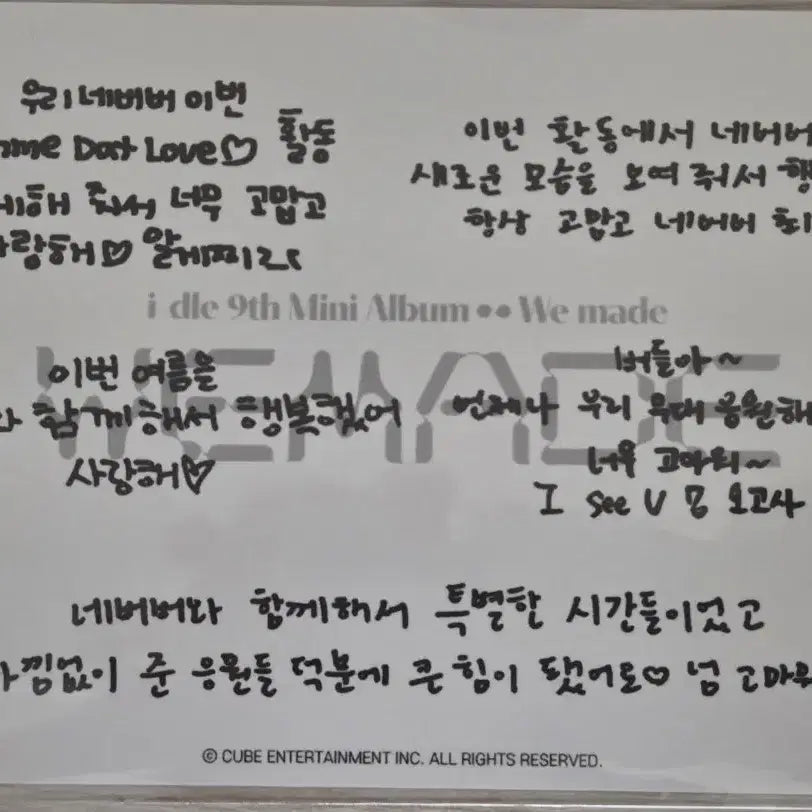 우리 네버버 이번
Dat Love♡ 활동
해 줘서 너무 고맙고
사랑해♡ 알게찌
이번 활동에서 네버버
새로운 모습을 보여 줘서
항상 고맙고 네버버 최
i dle 9th Mini Album •• We made
WEMADE
이번 여름을
함께해서 행복했어
사랑해♡
버들아~
언제나 우리 무대 응원해
너무 고마워~
I see U 맘 보고사
네버버와 함께해서 특별한 시간들이었고
아낌없이 준 응원들 덕분에 큰 힘이 됐어요♡ 넘 고마워
© CUBE ENTERTAINMENT INC. ALL RIGHTS RESERVED.